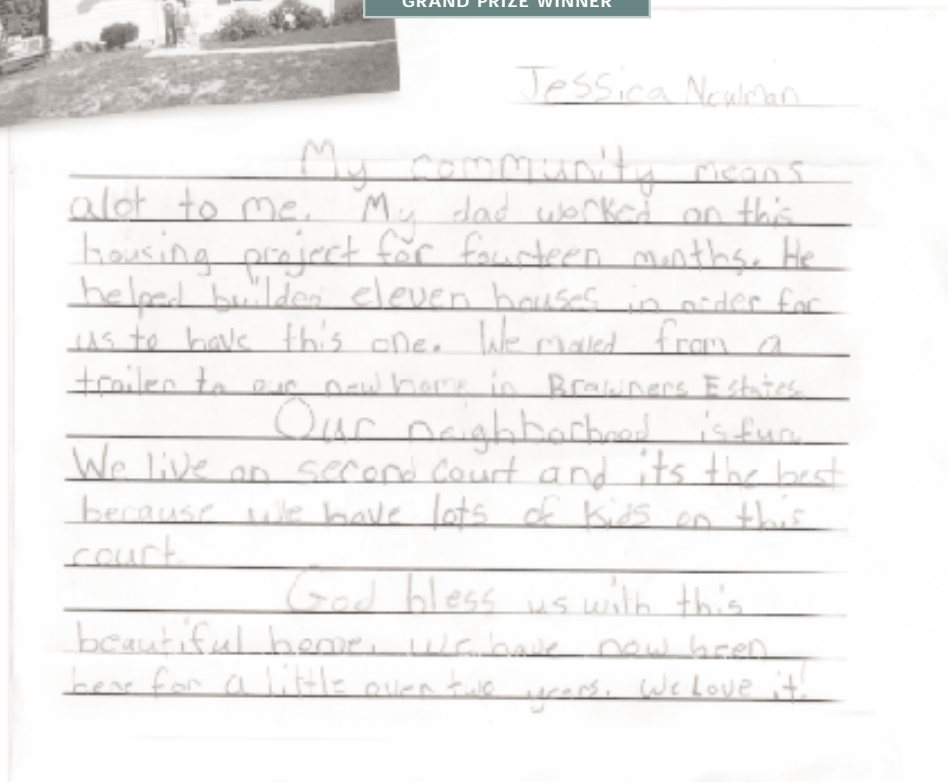 GRAND PRIZE WINNER
Jessica Newman
My community means
alot to me. My dad worked on this
housing project for fourteen months. He
helped builded eleven houses in order for
us to have this one. We moved from a
trailer to our new home in Brawners Estates.
Our neighborhood is fun.
We live on second court and its the best
because we have lots of kids on this
court.
God bless us with this
beautiful home. We have now been
here for a little over two years. We Love it!